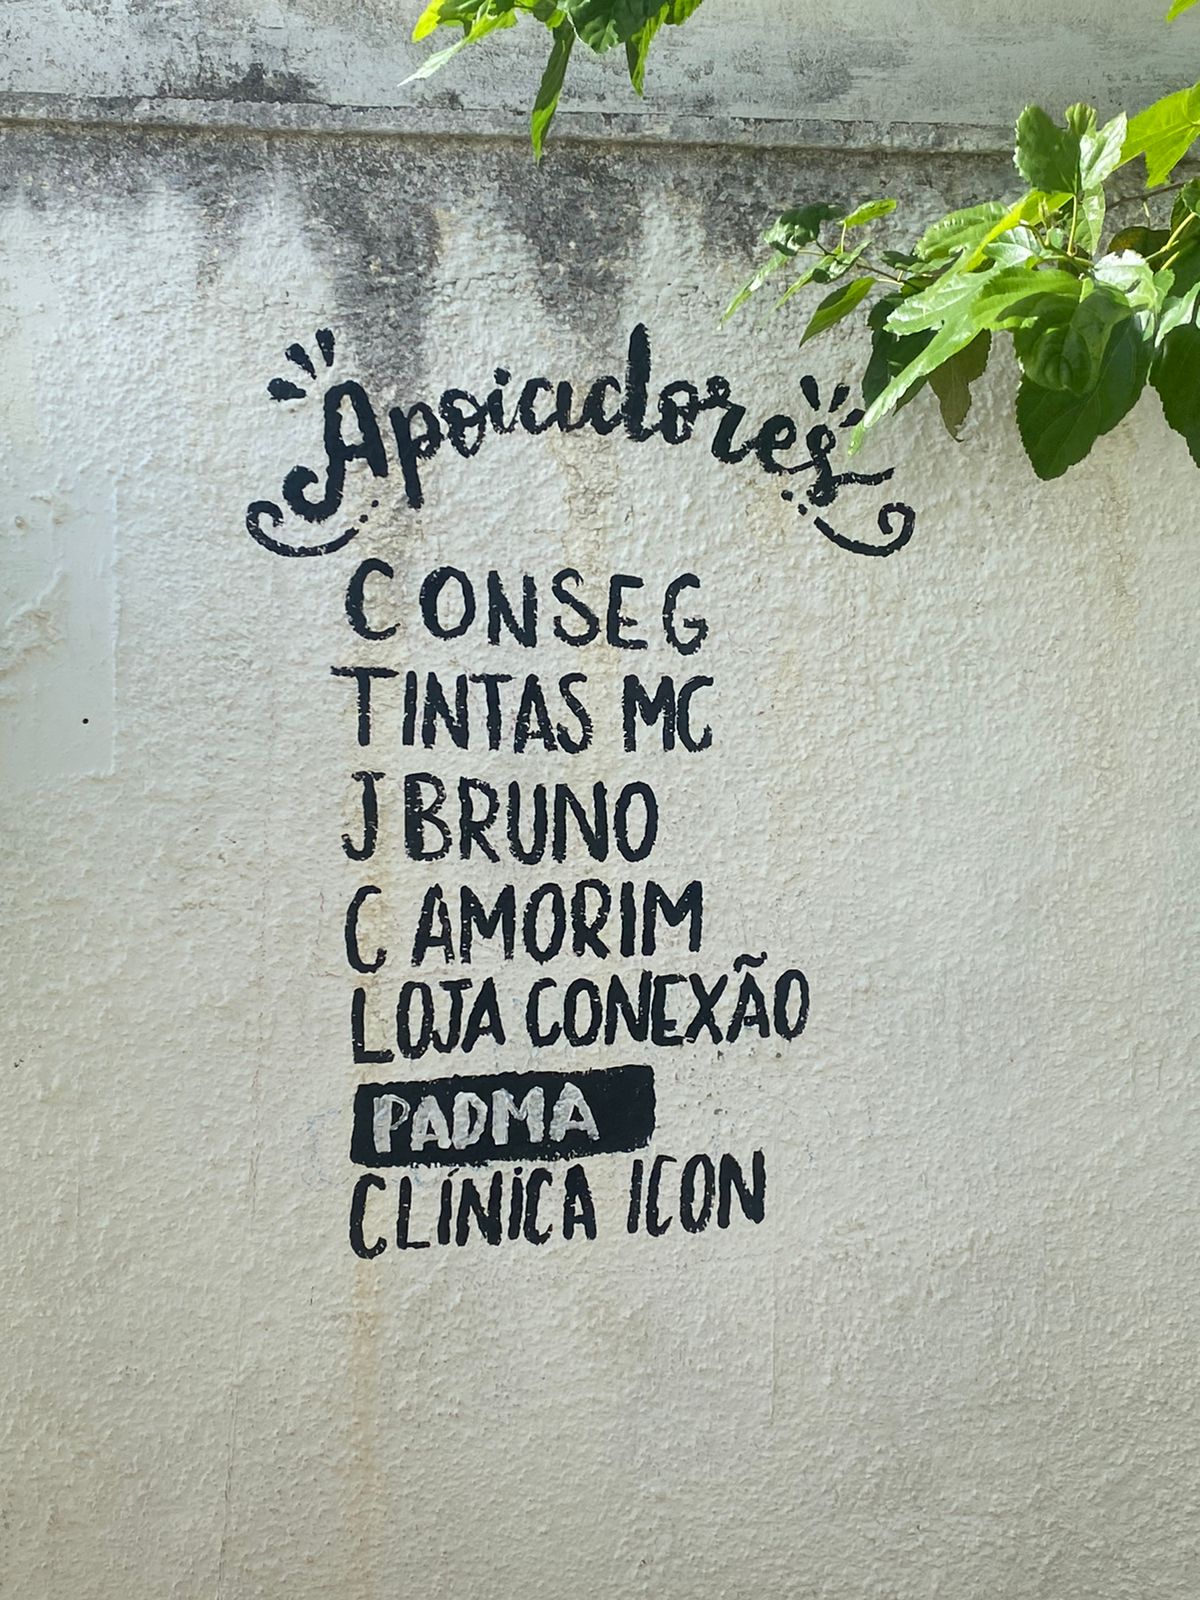 Apoiadores
CONSEG
TINTAS MC
J BRUNO
C AMORIM
LOJA CONEXÃO
PADMA
CLÍNICA ICON